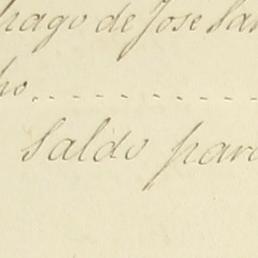 pago de Jose San
ho..............
Saldo para